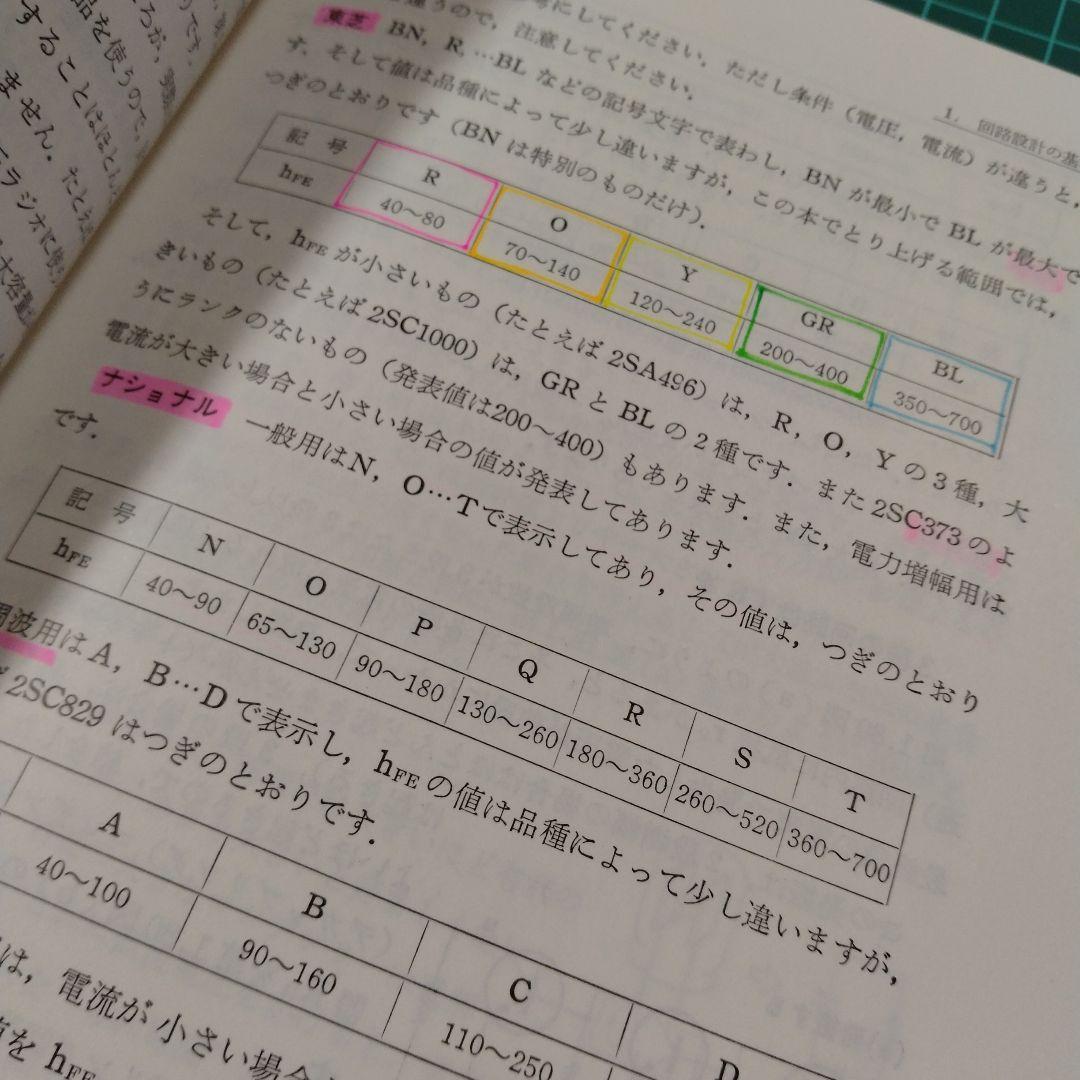 1. 回路設計の基
にしてください．ただし条件（電圧，電流）が違うと，
違うので，注意してください．
東芝 BN，R，…BL などの記号文字で表わし，BNが最小で BL が最大で
す．そして値は品種によって少し違いますが，この本でとり上げる範囲では，
つぎのとおりです（BN は特別のものだけ）．
記 号 R O Y GR BL
hFE 40〜80 70〜140 120〜240 200〜400 350〜700
そして，hFE が小さいもの（たとえば 2SA496）は，R，O，Y の 3 種，大
きいもの（たとえば 2SC1000）は，GR と BL の 2 種です．また 2SC373 のよ
うにランクのないもの（発表値は200〜400）もあります．また，電力増幅用は
電流が大きい場合と小さい場合の値が発表してあります．
ナショナル 一般用はN，O…Tで表示してあり，その値は，つぎのとおり
です．
記 号 N O P Q R S T
hFE 40〜90 65〜130 90〜180 130〜260 180〜360 260〜520 360〜700
周波用は A，B…D で表示し，hFE の値は品種によって少し違いますが，
2SC829 はつぎのとおりです．
A B C D
40〜100 90〜160 110〜250
は，電流が小さい場合
を hFE
品を使うので，
ろが，実際
することはほとん
ません．たとえ
ラジオに使
大容量